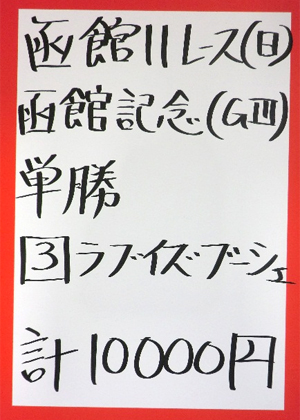 函館11レース(日)
函館記念(GⅢ)
単勝
3ラブイズブーシェ
計10000円